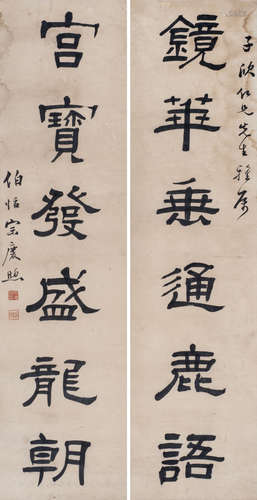 子欣仁兄先生雅属
鏡華乗通鹿語
宫寶發盛龍朝
伯恬宗慶煦